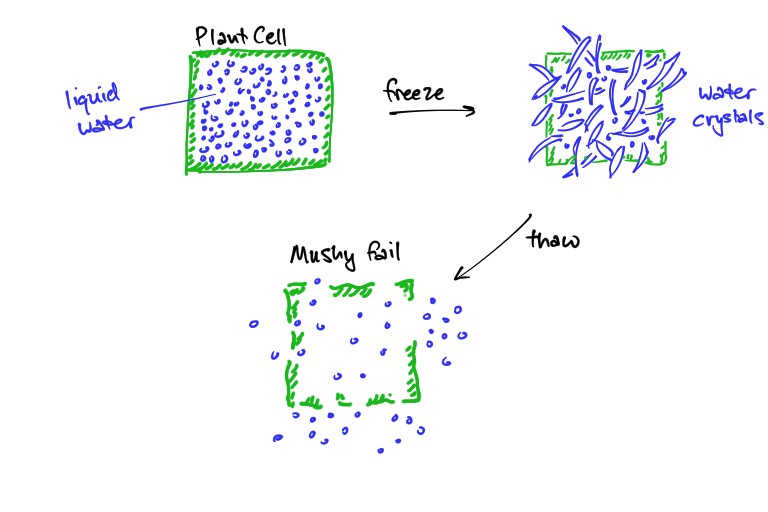 Plant Cell
liquid
water
freeze
water
crystals
thaw
Mushy fail